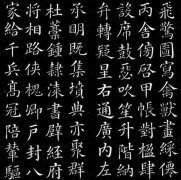 飛驚圖寫禽獸畫綵仙
丙舍傍啓甲帳對楹肆
設席鼓瑟吹笙升階納
弁轉疑星右通廣內左
承明既集墳典亦聚群
杜稾鍾隸漆書壁經府
將相路俠槐卿戶封八
家給千兵高冠陪輦驅